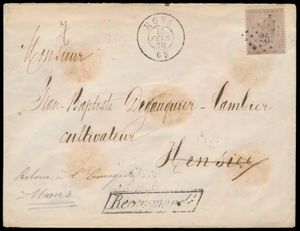 MONS
15
FEVR
70
6 S
Monsieur
Jean-Baptiste Deganquier-Cambier
cultivateur
Hensies
Retour à l'Envoyeur
Mons
Recommandé